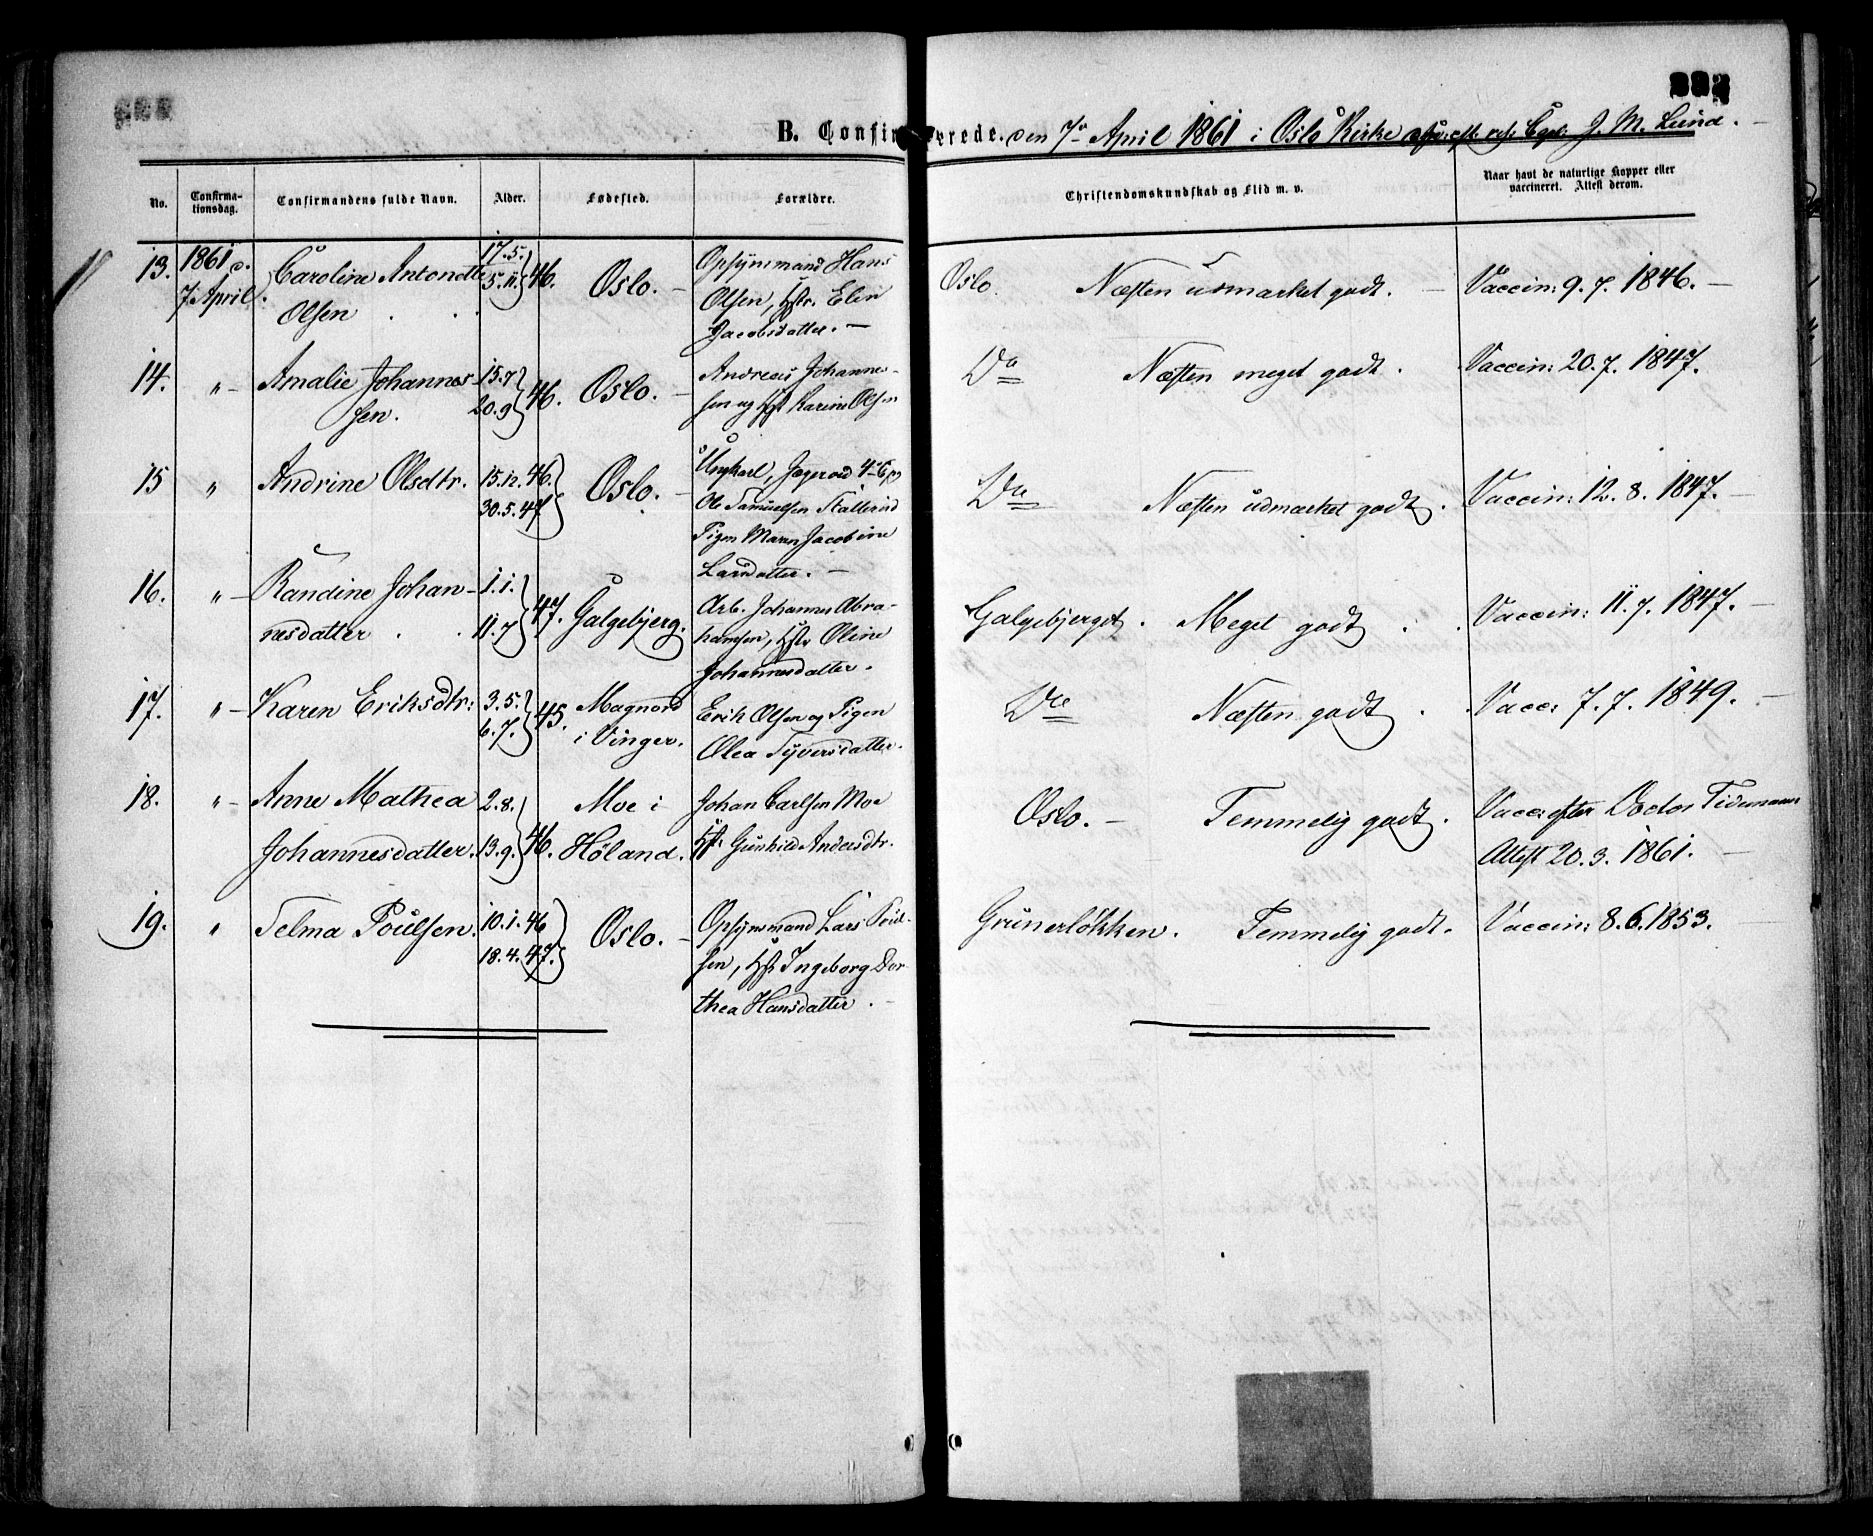 B. Confirmerede. den 7de April 1861 i Oslo Kirke J. M. Lund.
No. Confirmationsdag. Confirmandens fulde Navn. Alder. Fødested. Forældre. Christendomskundskab og Flid m. v. Naar havt de naturlige Kopper eller vaccineret. Attest derom.
13. 1861 d. 17.5. Opsynsmand Hans
7 April. Caroline Antonette 5.11. 46. Oslo. Olsen, Hstr. Elen Oslo. Næsten udmærket godt. Vaccin: 9.7. 1846.
Olsen Jacobsdatter.
14. " Amalie Johannes- 15.7 Andreas Johannes- Do Næsten meget godt. Vaccin: 20.7. 1847.
sen. 20.9 46. Oslo. sen og Hst Karine Olsen
15 " Andrine Olsdtr. 15.12.46. Oslo. Ungkarl, Jæger ved
30.5.47 Ole Samuelsen Do Næsten udmærket godt. Vaccin: 12.8. 1847.
Pigen Maren Jacobine
Larsdatter.
16. " Randine Johan- 1.1. 47. Galgebjerg. Arb. Johannes Abra- Galgebjerget. Meget godt Vaccin: 11.7. 1847.
nesdatter 11.7 hamsen, Hstr Oline
Johannesdatter.
17. " Karen Eriksdtr: 3.5. 45. Magnord Erik Olsen og Pigen Do Næsten godt Vacc: 7.7. 1849.
6.7. i Vinger. Olea Syversdatter.
18. " Anne Mathea 2.8. Moe i Johan Carlsen Moe Oslo. Temmelig godt. Vacc: efter Doctor Tidemans
Johannesdatter. 13.9. 46. Høland. Hst: Gunhild Andersdtr. Attest 20.3. 1861.
19. " Telma Poulsen. 10.1.46 Oslo. Opsynsmand Lars Poul- Grünerløkken. Temmelig godt. Vaccin: 8.6.1853.
18.4.47. sen, Hstr Ingeborg Dor-
thea Hansdatter.